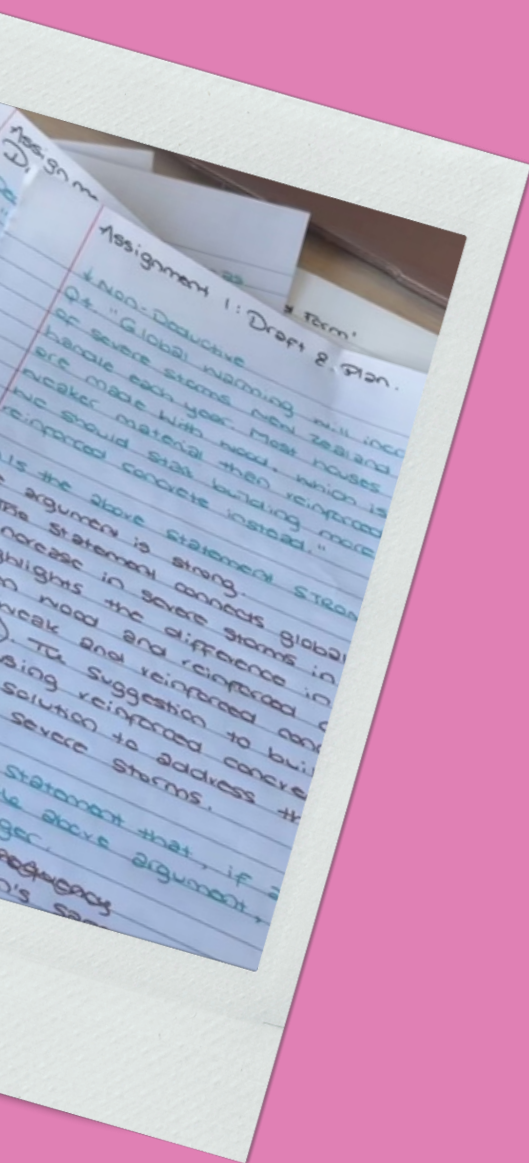 Assignme
D.
as
Form'
Assignment 1: Draft & Plan.
* Non-Deductive
Q4. "Global warming will incr
of severe storms New Zealand
handle each year. Most houses
are made with wood, which is
weaker material then reinforced
we should start building more
reinforced concrete instead."
Is the above statement STRON
argument is strong.
The statement connects global
ncrease in severe storms in
ghlights the difference in
n wood and reinforced c
weak and reinforced conc
). The suggestion to buil
sing reinforced concre
solution to address th
severe storms.
statement that, if a
above argument,
ger.
n's